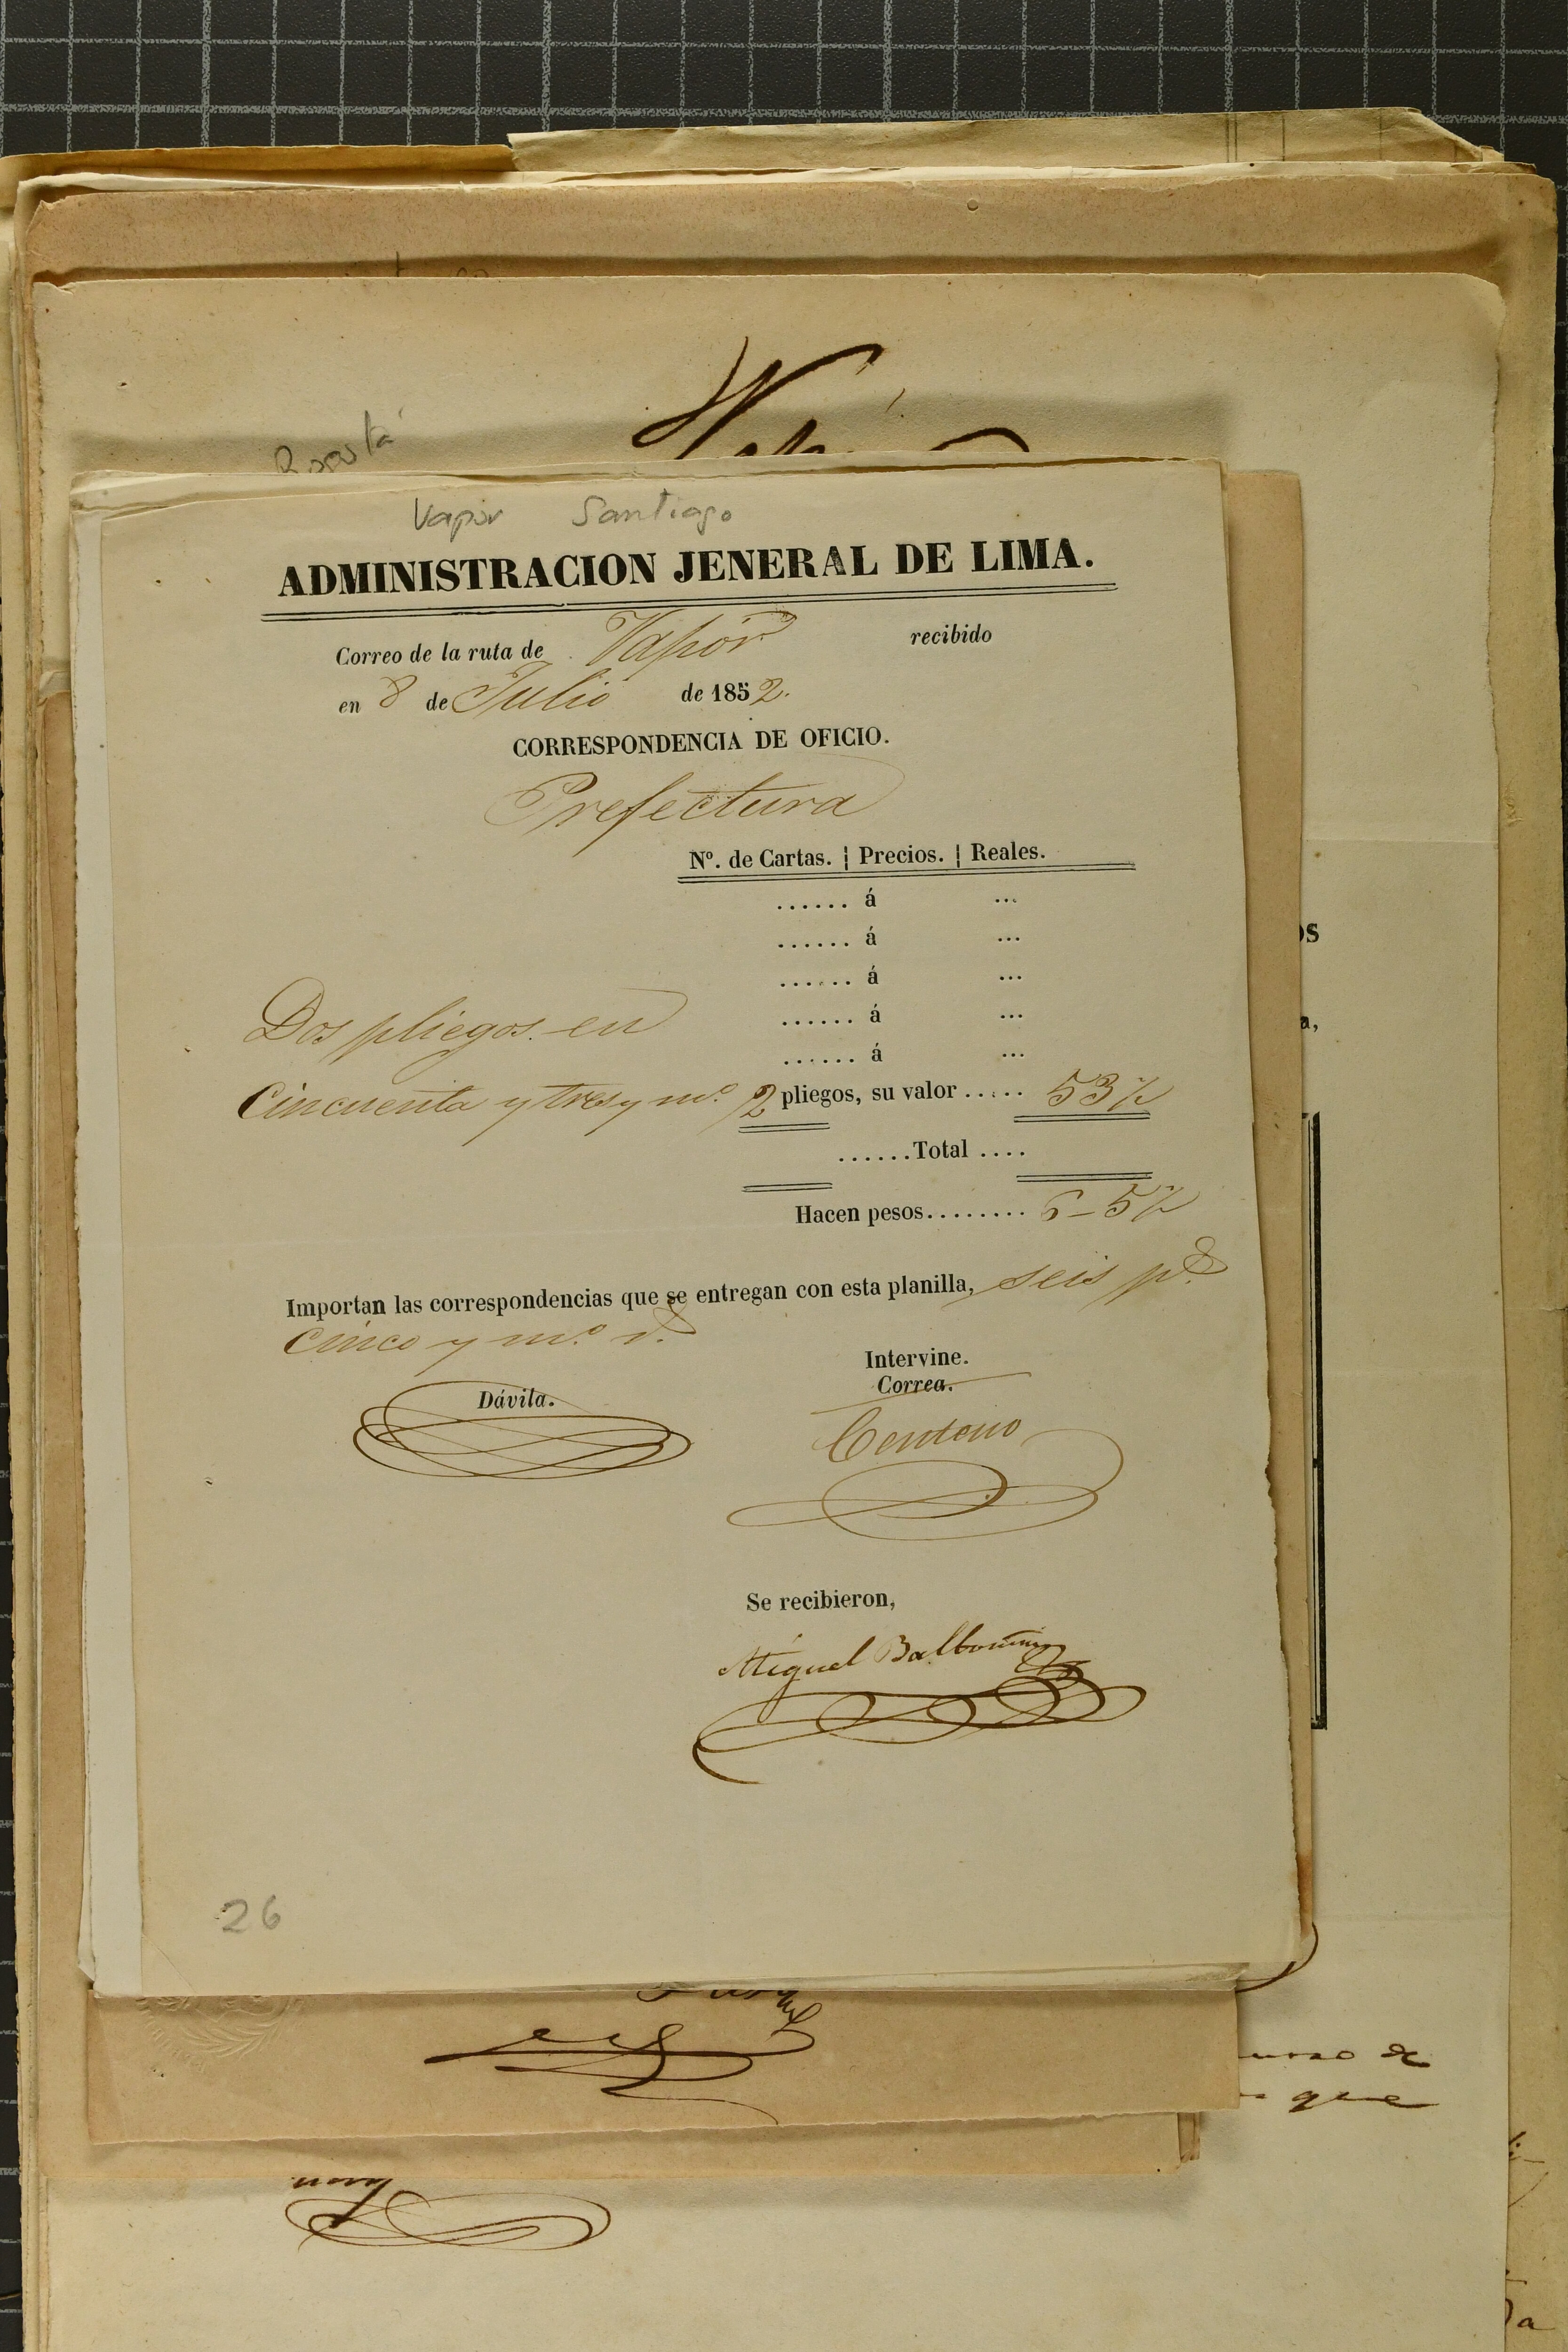 Vapor Santiago
ADMINISTRACION JENERAL DE LIMA.
Correo de la ruta de Vapor recibido
en 8 de Julio de 1852.
CORRESPONDENCIA DE OFICIO.
Prefectura
Nº. de Cartas. | Precios. | Reales.
...... á ...
...... á ...
...... á ...
Dos pliegos en ...... á ...
...... á ...
Cincuenta y tres y mº. 2 pliegos, su valor ..... 53½
......Total ....
Hacen pesos........ 6-5½
Importan las correspondencias que se entregan con esta planilla, seis ps.
Cinco y mº. rs.
Intervine.
Dávila. Correa.
Centeno
Se recibieron,
Miguel
26
que